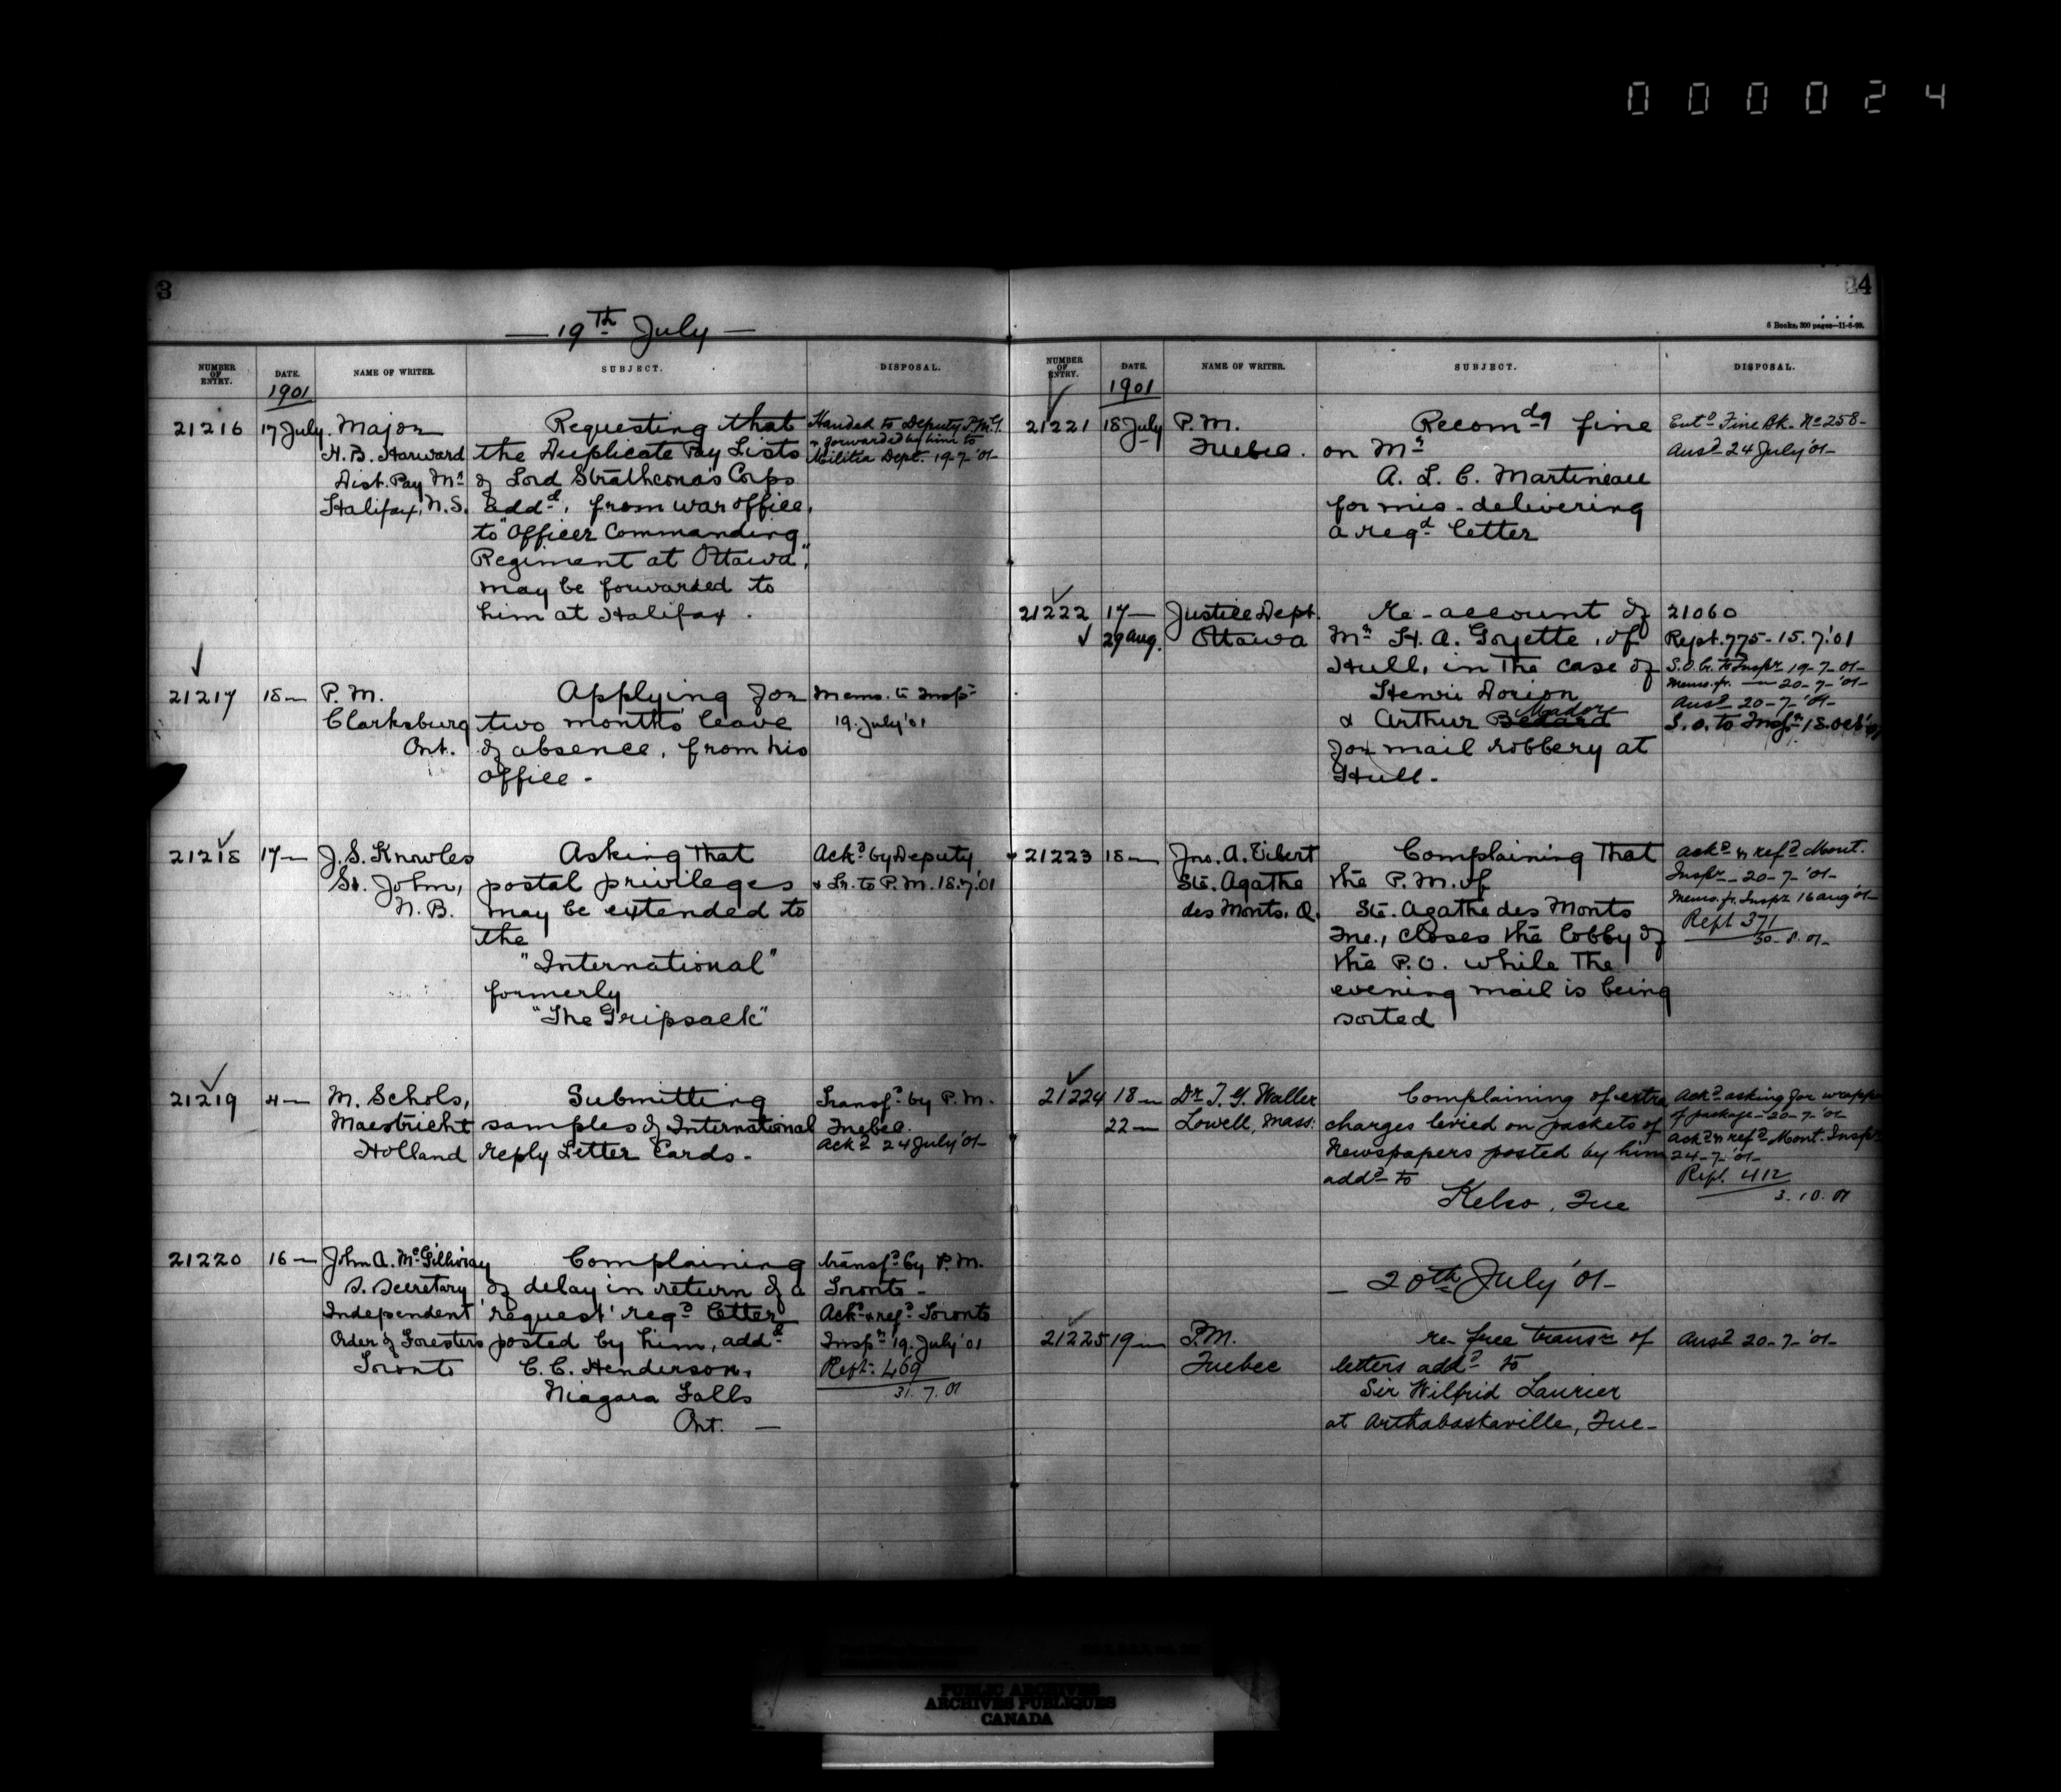 000024
3
— 19th July —
NUMBER OF ENTRY.
DATE.
NAME OF WRITER.
SUBJECT.
DISPOSAL.
1901
21216
17 July.
Major
H. B. Harward
Dist. Pay Mr
Halifax, N.S.
Requesting that
the Duplicate Pay Lists
of Lord Strathcona's Corps
Addd, from war office,
to "Officer Commanding
Regiment at Ottawa",
may be forwarded to
him at Halifax.
Handed to Deputy P.M.G.
& forwarded by him to
Militia Dept. 19-7-'01-
21217
18—
P. M.
Clarksburg
Ont.
Applying for
two months leave
of absence, from his
office -
Memo. to Inspr
19. July '01
21218
17—
J. S. Knowles
St. John,
N. B.
Asking that
postal privileges
may be extended to
the
"International"
formerly
"The Gripsack"
Ackd by Deputy
& Lr. to P.M. 18.7.'01
21219
4—
M. Schols,
Maestricht
Holland
Submitting
samples of International
reply Letter Cards -
Transfd by P. M.
Quebec.
Ackd 24 July '01-
21220
16—
John A. McGillivray
S. Secretary
Independent
Order of Foresters
Toronto
Complaining
of delay in return of a
'request' regd letter
posted by him, addd
C. C. Henderson,
Niagara Falls
Ont. —
transfd by P. M.
Toronto -
Ackd & refd Toronto
Inspr 19. July '01
Rept. 469
31. 7. 01
4
6 Books, 300 pages—11-6-99.
NUMBER OF ENTRY.
DATE.
NAME OF WRITER.
SUBJECT.
DISPOSAL.
1901
21221
18 July
P. M.
Quebec.
Recomdg fine
on Mr
A. L. C. Martineau
for mis-delivering
a regd letter
Entd Fine Bk. No 258-
Ansd 24 July '01-
21222
17—
29 Aug.
Justice Dept.
Ottawa
Re-account of
Mr H. A. Goyette, of
Hull, in the case of
Henri Dorion
Madore
& Arthur Bedard
for mail robbery at
Hull -
21060
Rept. 775 - 15. 7.'01
S.O. to Inspr 19-7-01-
Memo. fr. — 20-7-'01-
Ansd 20-7-'01-
S.O. to Inspr 18. Oct '01
21223
18—
Jno. A.
Ste. Agathe
des Monts. Q.
Complaining that
the P. M. of
Ste. Agathe des Monts
Que., closes the lobby of
the P.O. while the
evening mail is being
sorted
Ackd & refd Mont.
Inspr - 20-7-'01-
Memo. fr. Inspr 16 Aug '01-
Rept 371
30-8-01-
21224
18—
22—
Dr T. G. Waller
Lowell, Mass.
Complaining of extra
charges levied on packets of
Newspapers posted by him
addd to
Kelso, Que
Ackd asking for wrapper
of package - 20-7-'01-
Ackd & refd Mont. Inspr
24-7-'01-
Rept. 412
3. 10. 01
— 20th July '01-
21225
19—
P.M.
Quebec
re- free transn of
letters addd to
Sir Wilfrid Laurier
at Arthabaskaville, Que-
Ansd 20-7-'01-
PUBLIC ARCHIVES
ARCHIVES PUBLIQUES
CANADA